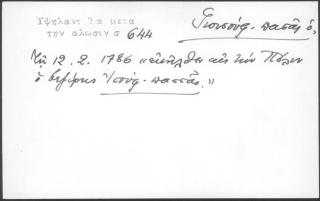 Υψηλάντ Τα μετα
την αλωσιν σ 644
Γιουσούφ-πασᾶς ὁ,
Τῇ 12.2.1786 «εἰσῆλθεν εἰς τὴν Πόλιν
ὁ βεζίρης Ἰσούφ-πασσᾶς.»